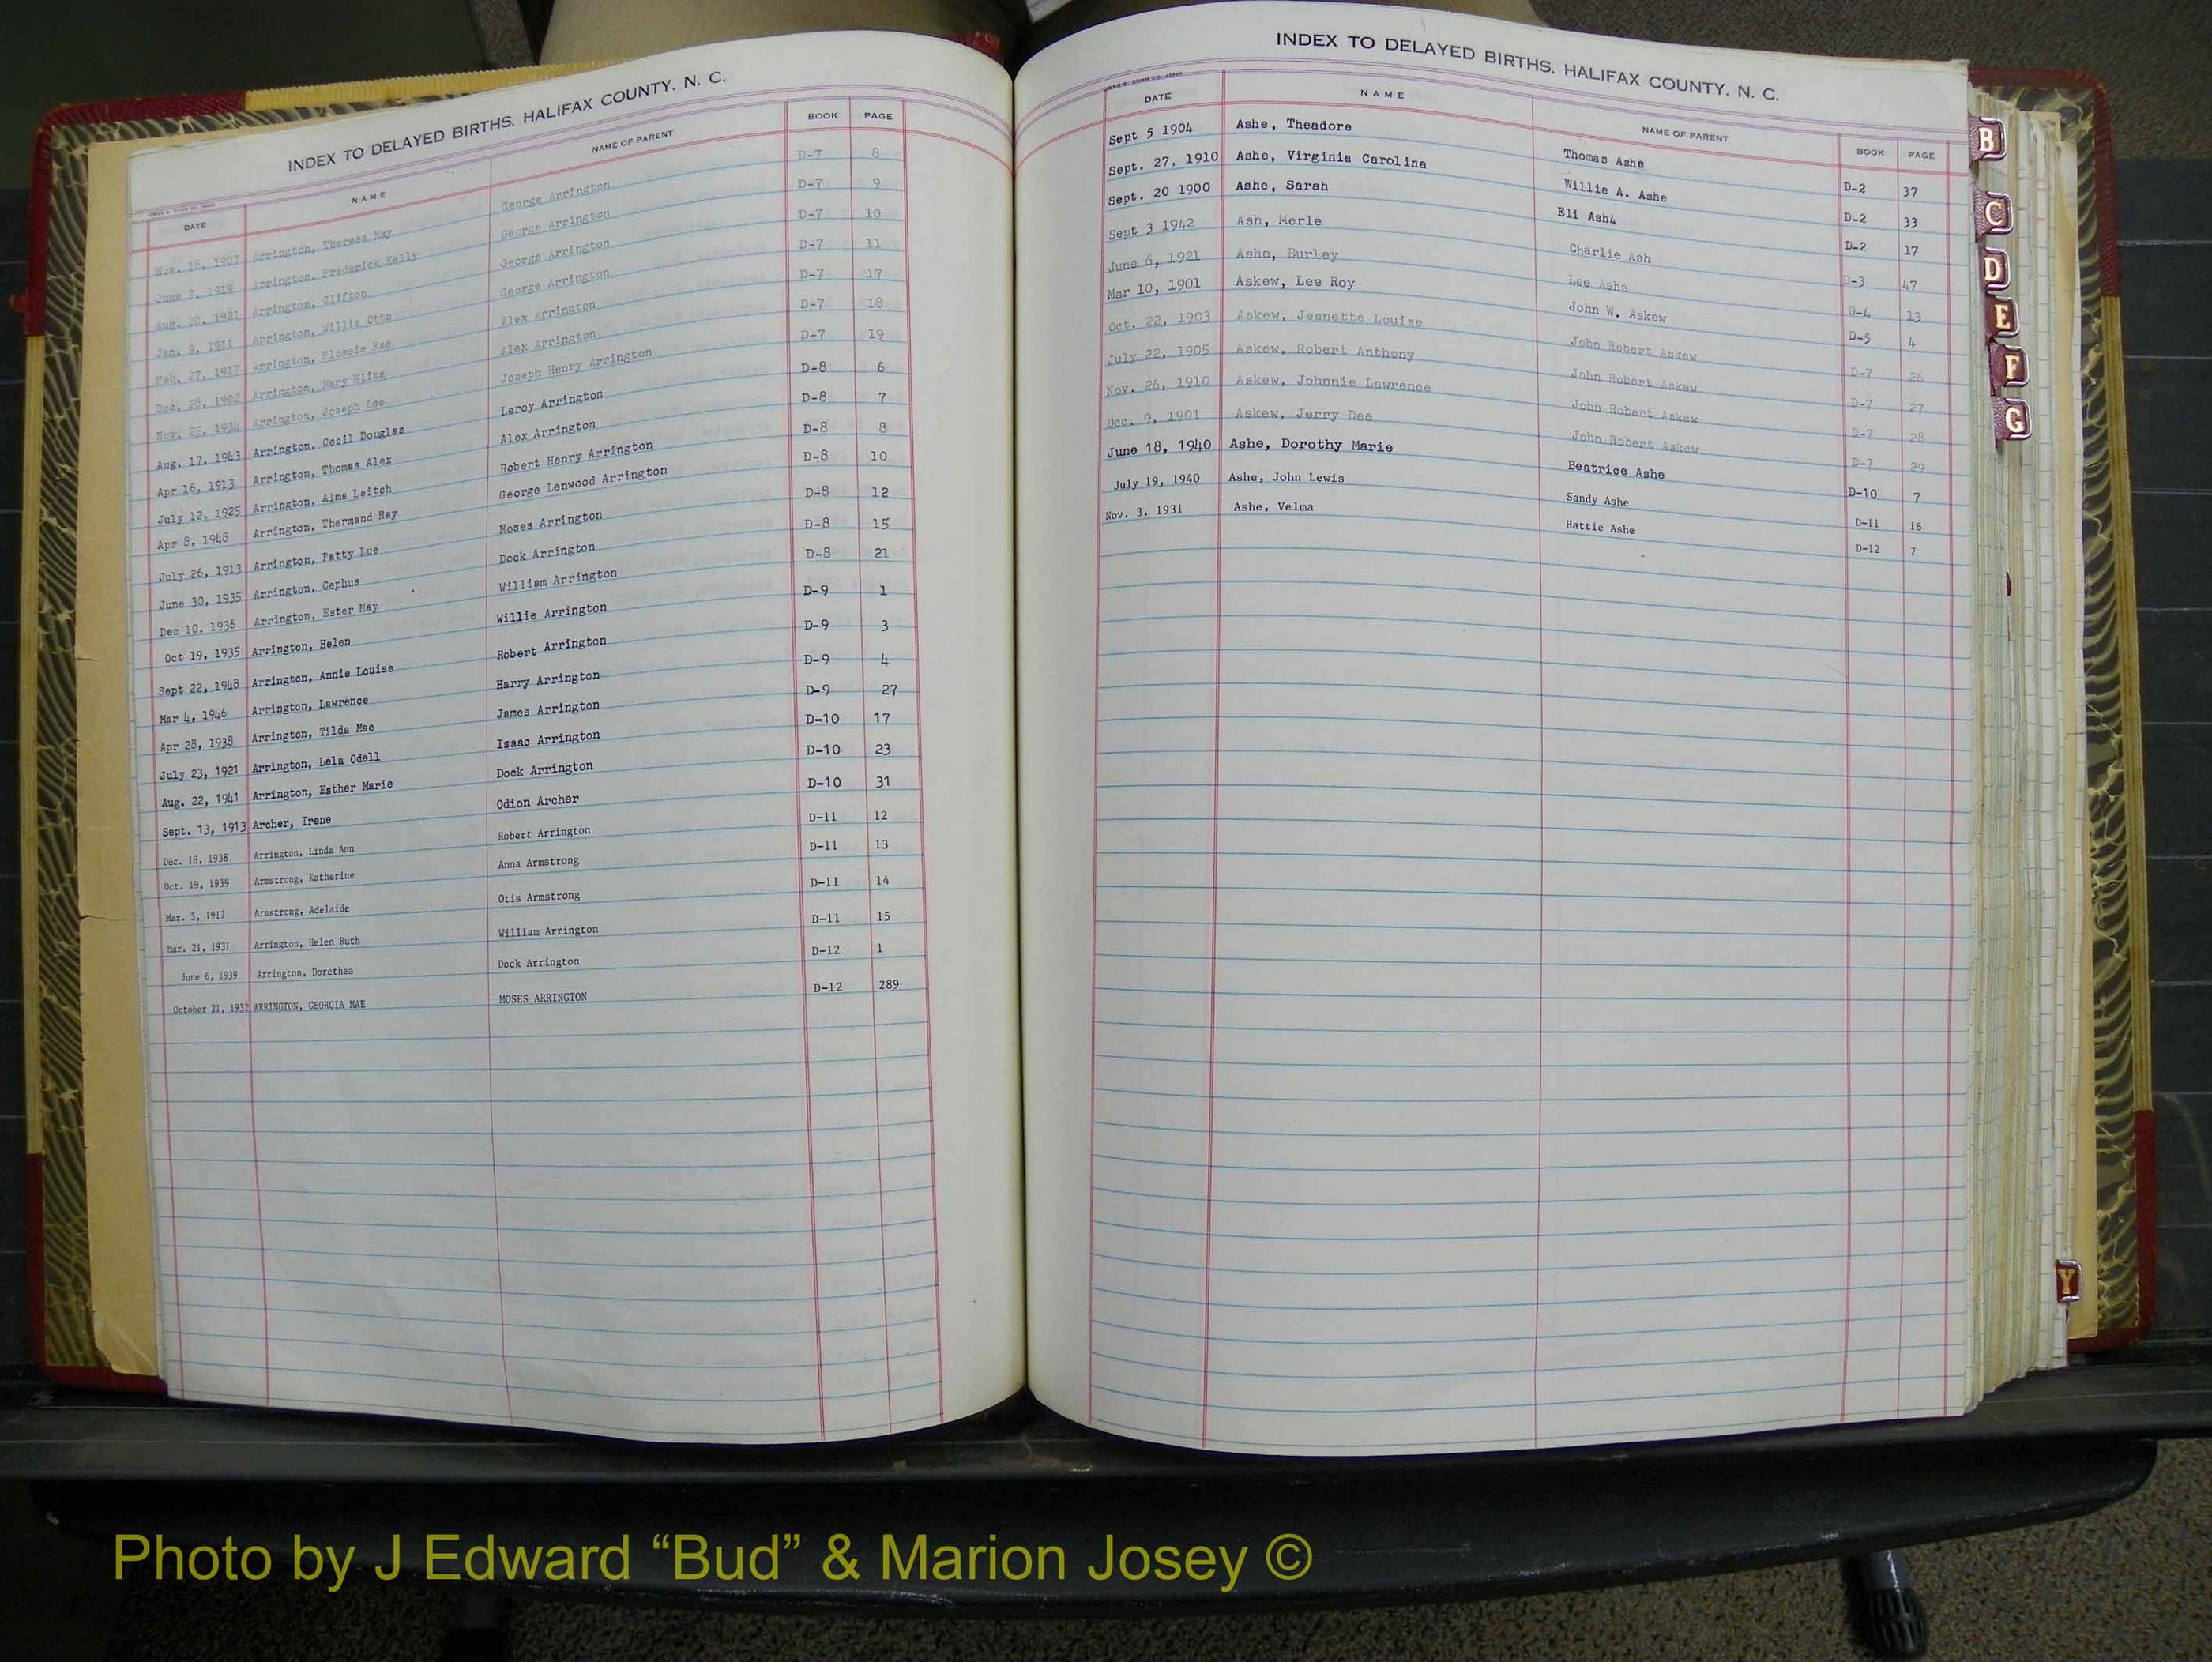 INDEX TO DELAYED BIRTHS, HALIFAX COUNTY, N. C.
DATE NAME NAME OF PARENT BOOK PAGE
Nov. 18, 1907 Arrington, Theresa May George Arrington D-7 8
June 7, 1919 Arrington, Frederick Kelly George Arrington D-7 9
Aug. 20, 1921 Arrington, Clifton George Arrington D-7 10
Jan. 9, 1911 Arrington, Willie Otto George Arrington D-7 11
Feb. 27, 1917 Arrington, Flossie Mae Alex Arrington D-7 17
Dec. 28, 1902 Arrington, Mary Eliza Alex Arrington D-7 18
Nov. 25, 1934 Arrington, Joseph Lee Joseph Henry Arrington D-7 19
Aug. 17, 1943 Arrington, Cecil Douglas Leroy Arrington D-8 6
Apr 16, 1913 Arrington, Thomas Alex Alex Arrington D-8 7
July 12, 1925 Arrington, Alma Leitch Robert Henry Arrington D-8 8
Apr 8, 1948 Arrington, Thermand Ray George Lenwood Arrington D-8 10
July 26, 1913 Arrington, Patty Lue Moses Arrington D-8 12
June 30, 1935 Arrington, Cephus Dock Arrington D-8 15
Dec 10, 1936 Arrington, Ester May William Arrington D-8 21
Oct 19, 1935 Arrington, Helen Willie Arrington D-9 1
Sept 22, 1948 Arrington, Annie Louise Robert Arrington D-9 3
Mar 4, 1946 Arrington, Lawrence Harry Arrington D-9 4
Apr 28, 1938 Arrington, Tilda Mae James Arrington D-9 27
July 23, 1921 Arrington, Lela Odell Isaac Arrington D-10 17
Aug. 22, 1941 Arrington, Esther Marie Dock Arrington D-10 23
Sept. 13, 1913 Archer, Irene Odion Archer D-10 31
Dec. 18, 1938 Arrington, Linda Ann Robert Arrington D-11 12
Oct. 19, 1939 Armstrong, Katherine Anna Armstrong D-11 13
Mar. 5, 1917 Armstrong, Adelaide Otis Armstrong D-11 14
Mar. 21, 1931 Arrington, Helen Ruth William Arrington D-11 15
June 6, 1939 Arrington, Dorethea Dock Arrington D-12 1
October 21, 1932 ARRINGTON, GEORGIA MAE MOSES ARRINGTON D-12 289
INDEX TO DELAYED BIRTHS, HALIFAX COUNTY, N. C.
DATE NAME NAME OF PARENT BOOK PAGE
Sept 5 1904 Ashe, Theadore Thomas Ashe D-2 37
Sept. 27, 1910 Ashe, Virginia Carolina Willie A. Ashe D-2 33
Sept. 20 1900 Ashe, Sarah Eli Ash4 D-2 17
Sept 3 1942 Ash, Merle Charlie Ash D-3 47
June 6, 1921 Ashe, Burley Lee Ashe D-4 13
Mar 10, 1901 Askew, Lee Roy John W. Askew D-5 4
Oct. 22, 1903 Askew, Jeanette Louise John Robert Askew D-7 26
July 22, 1905 Askew, Robert Anthony John Robert Askew D-7 27
Nov. 26, 1910 Askew, Johnnie Lawrence John Robert Askew D-7 28
Dec. 9, 1901 Askew, Jerry Dee John Robert Askew D-7 29
June 18, 1940 Ashe, Dorothy Marie Beatrice Ashe D-10 7
July 19, 1940 Ashe, John Lewis Sandy Ashe D-11 16
Nov. 3. 1931 Ashe, Velma Hattie Ashe D-12 7
B
C
D
E
F
G
Y
Photo by J Edward “Bud” & Marion Josey ©